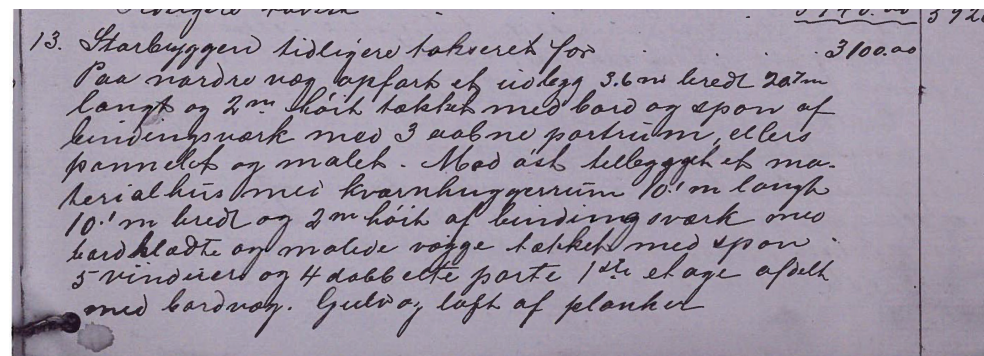 13. Storbyggen tidligere takseret for . . . 3100.00
Paa nordre væg opført et udlegg 3.6 m bredt 20.7 m
langt og 2 m høit tækket med bord og spon af
bindingsværk med 3 aabne portrum, ellers
pannelet og malet. Mod øst tilbygget et ma-
terialhus med kværnhuggerrum 10.1 m langt
10.1 m bredt og 2 m høit af bindingsværk med
bordklædte og malede vægge tækket med spon.
5 vinduer og 4 dobbelte porte 1ste etage afdelt
med bordvæg. Gulv og loft af planker